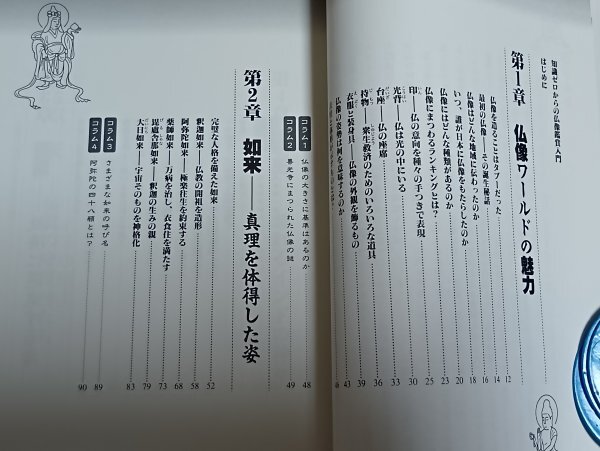 知識ゼロからの仏像鑑賞入門
はじめに
第1章 仏像ワールドの魅力
仏像を造ることはタブーだった 12
最初の仏像——その誕生秘話 14
仏像はどんな地域に伝わったのか 16
いつ、誰が日本に仏像をもたらしたのか 18
仏像にはどんな種類があるのか 20
仏像にまつわるランキングとは? 23
印——仏の意向を種々の手つきで表現 25
光背——仏は光の中にいる 30
台座——仏の座席 33
持物——衆生救済のためのいろいろな道具 36
衣服と装身具——仏像の外観を飾るもの 39
仏像の姿勢は何を意味するのか 43
46
コラム1 仏像の大きさに基準はあるのか 48
コラム2 善光寺にまつられた仏像の謎 49
第2章 如来——真理を体得した姿
完璧な人格を備えた如来 52
釈迦如来——仏教の開祖を造形 58
阿弥陀如来——極楽往生を約束する 68
薬師如来——万病を治し、衣食住を満たす 73
毘盧舎那如来——釈迦の生みの親 79
大日如来——宇宙そのものを神格化 83
コラム3 さまざまな如来の呼び名 89
コラム4 阿弥陀の四十八願とは? 90